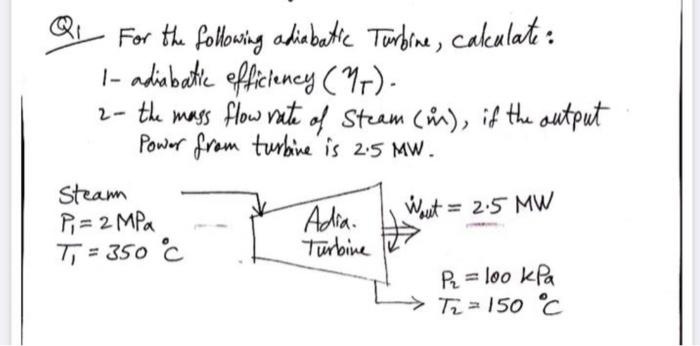 Q1 For the following adiabatic Turbine, calculate:
1- adiabatic efficiency (ηT).
2- the mass flow rate of Steam (ṁ), if the output
Power from turbine is 2.5 MW.
Steam
P1 = 2 MPa
T1 = 350 °C
Adia.
Turbine
Ẇout = 2.5 MW
P2 = 100 kPa
T2 = 150 °C